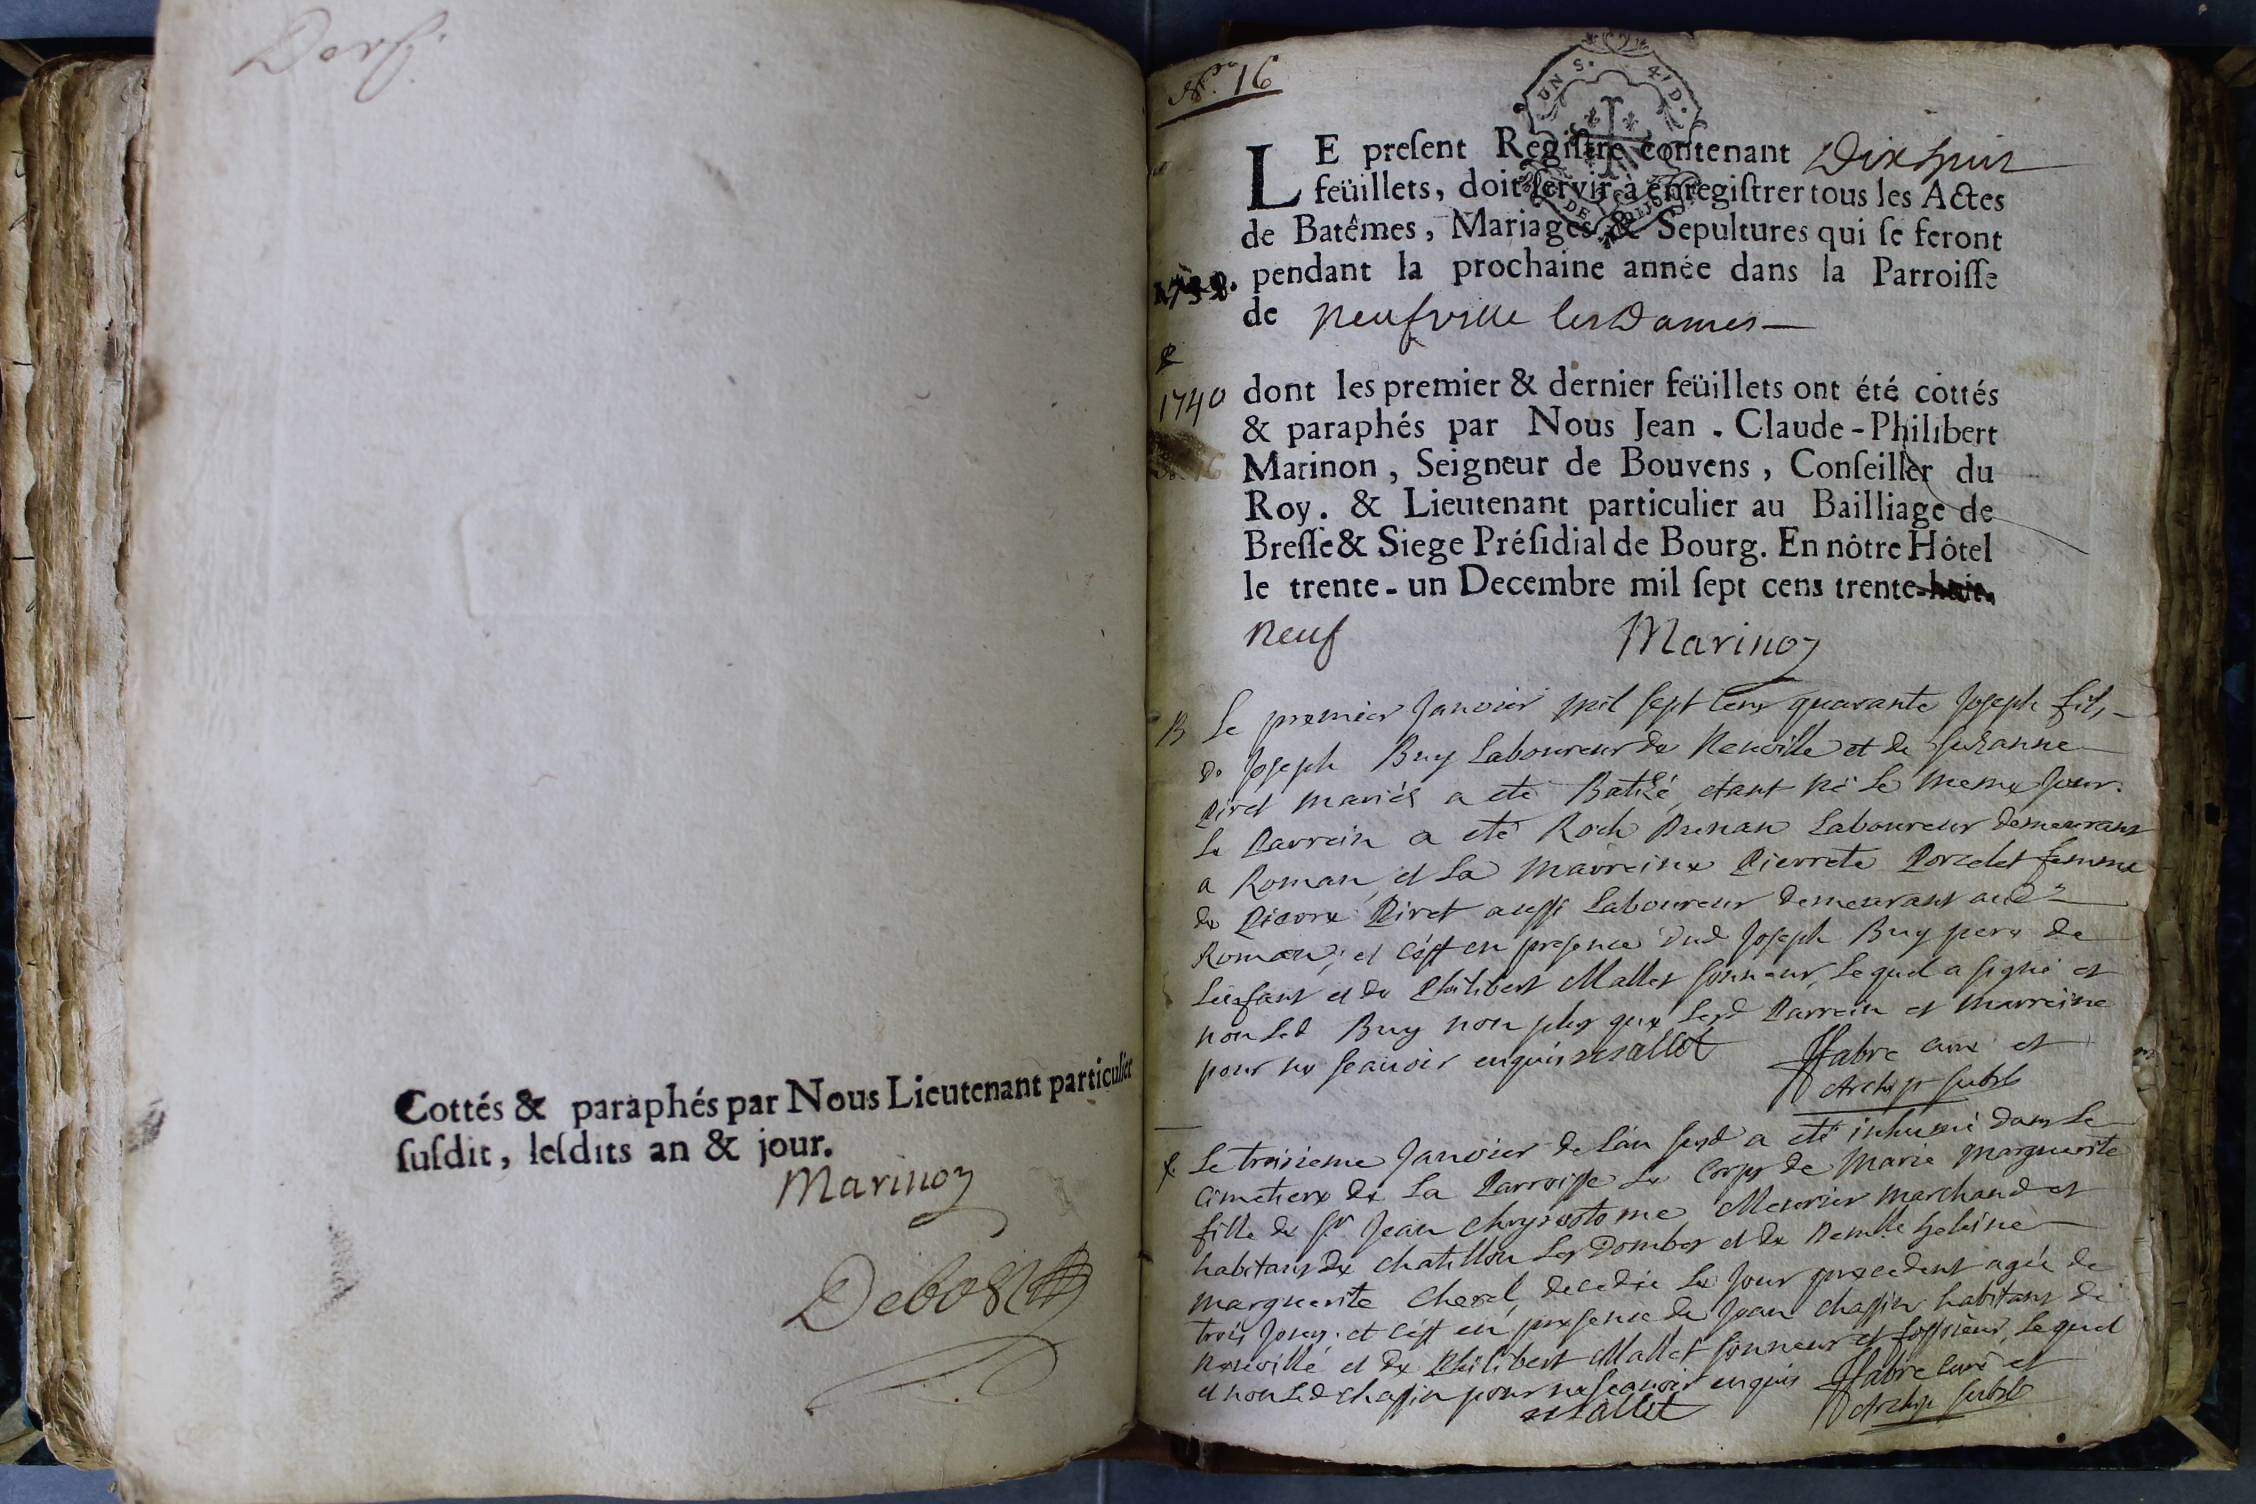 Cottés & paraphés par Nous Lieutenant particulier
ſuſdit, leſdits an & jour.
Marinon
Debost
No. 16
UN S. 4 D.
LE preſent Regiſtre contenant Dix huit
feüillets, doit ſervir à enregiſtrer tous les Actes
de Batêmes, Mariages & Sepultures qui ſe feront
pendant la prochaine année dans la Parroiſſe
de Neufville les Dames
&
1740
dont les premier & dernier feüillets ont été cottés
& paraphés par Nous Jean. Claude-Philibert
Marinon, Seigneur de Bouvens, Conſeiller du
Roy. & Lieutenant particulier au Bailliage de
Breſſe & Siege Préſidial de Bourg. En nôtre Hôtel
le trente-un Decembre mil ſept cens trente-huit.
neuf Marinon
B Le premier Janvier mil sept cens quarante Joseph fils
de Joseph Buy Laboureur de Neuville et de Suzanne
Piret mariés a eté Batizé etant né le meme jour.
Le Parrein a eté Roch Laboureur demeurant
a Roman et la marreine Pierrete Porcelet femme
de Pierre Piret aussi Laboureur demeurant aud
Roman, et c'est en presence dud Joseph Buy pere de
L'enfant et de Philibert Mallet sonneur, lequel a signé et
non led Buy non plus que lesd Parrein et marreine
pour ne scavoir enquis Mallet JFabre curé et
Archip subst
Le troisieme Janvier de l'an susd a eté inhumé dans le
cimetiere de la Parroisse le corps de Marie Marguerite
fille de Sr Jean Chrysostome Meurier marchand et
habitant de Chatillon les Dombes et de Demlle Heleine
Marguerite decedée le jour precedent agée de
trois jours. et c'est en presence de Jean Chassin habitant de
Neuville et de Philibert Mallet sonneur et fossoieur, lequel
et non led Chassin pour ne scavoir enquis JFabre curé et
Mallet Archip subst